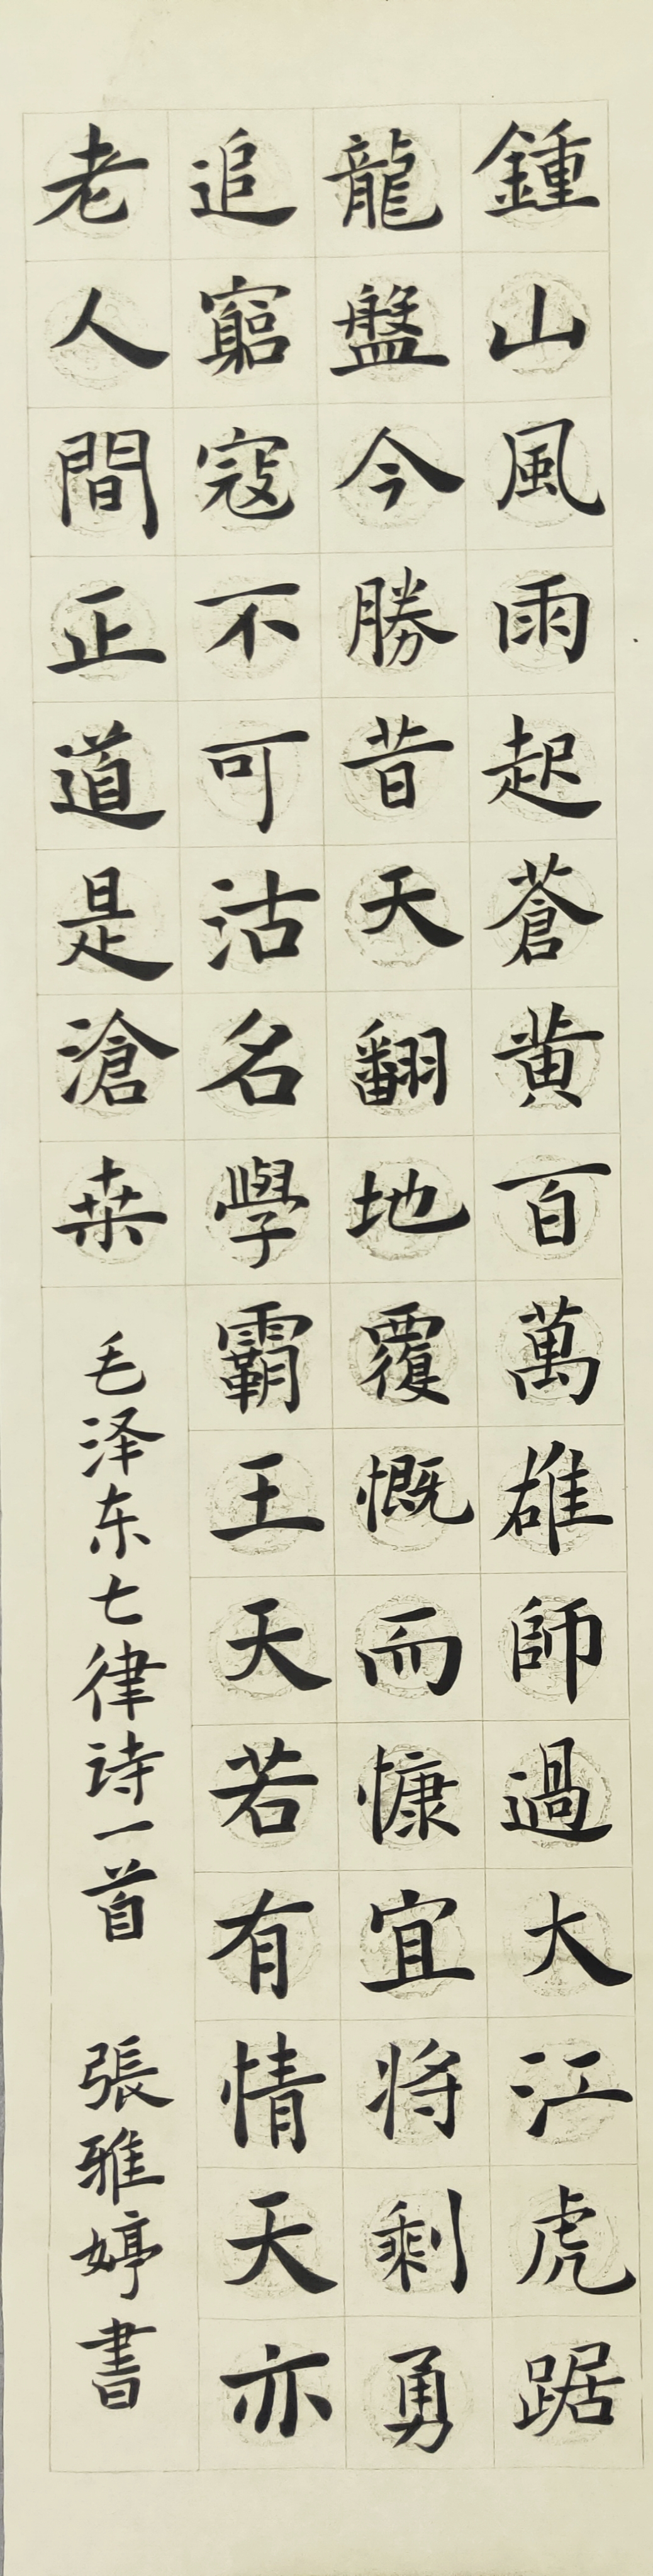 鍾山風雨起蒼黄百萬雄師過大江虎踞
龍盤今勝昔天翻地覆慨而慷宜将剩勇
追窮寇不可沽名學霸王天若有情天亦
老人間正道是滄桒
毛泽东七律诗一首 張雅婷書